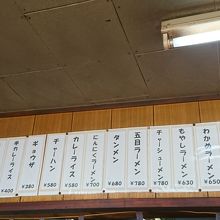 わかめラーメン
¥650
もやしラーメン
¥630
チャーシューメン
¥780
五目ラーメン
¥780
タンメン
¥680
にんにくラーメン
¥700
カレーライス
¥580
チャーハン
¥580
ギョウザ
¥380
¥400